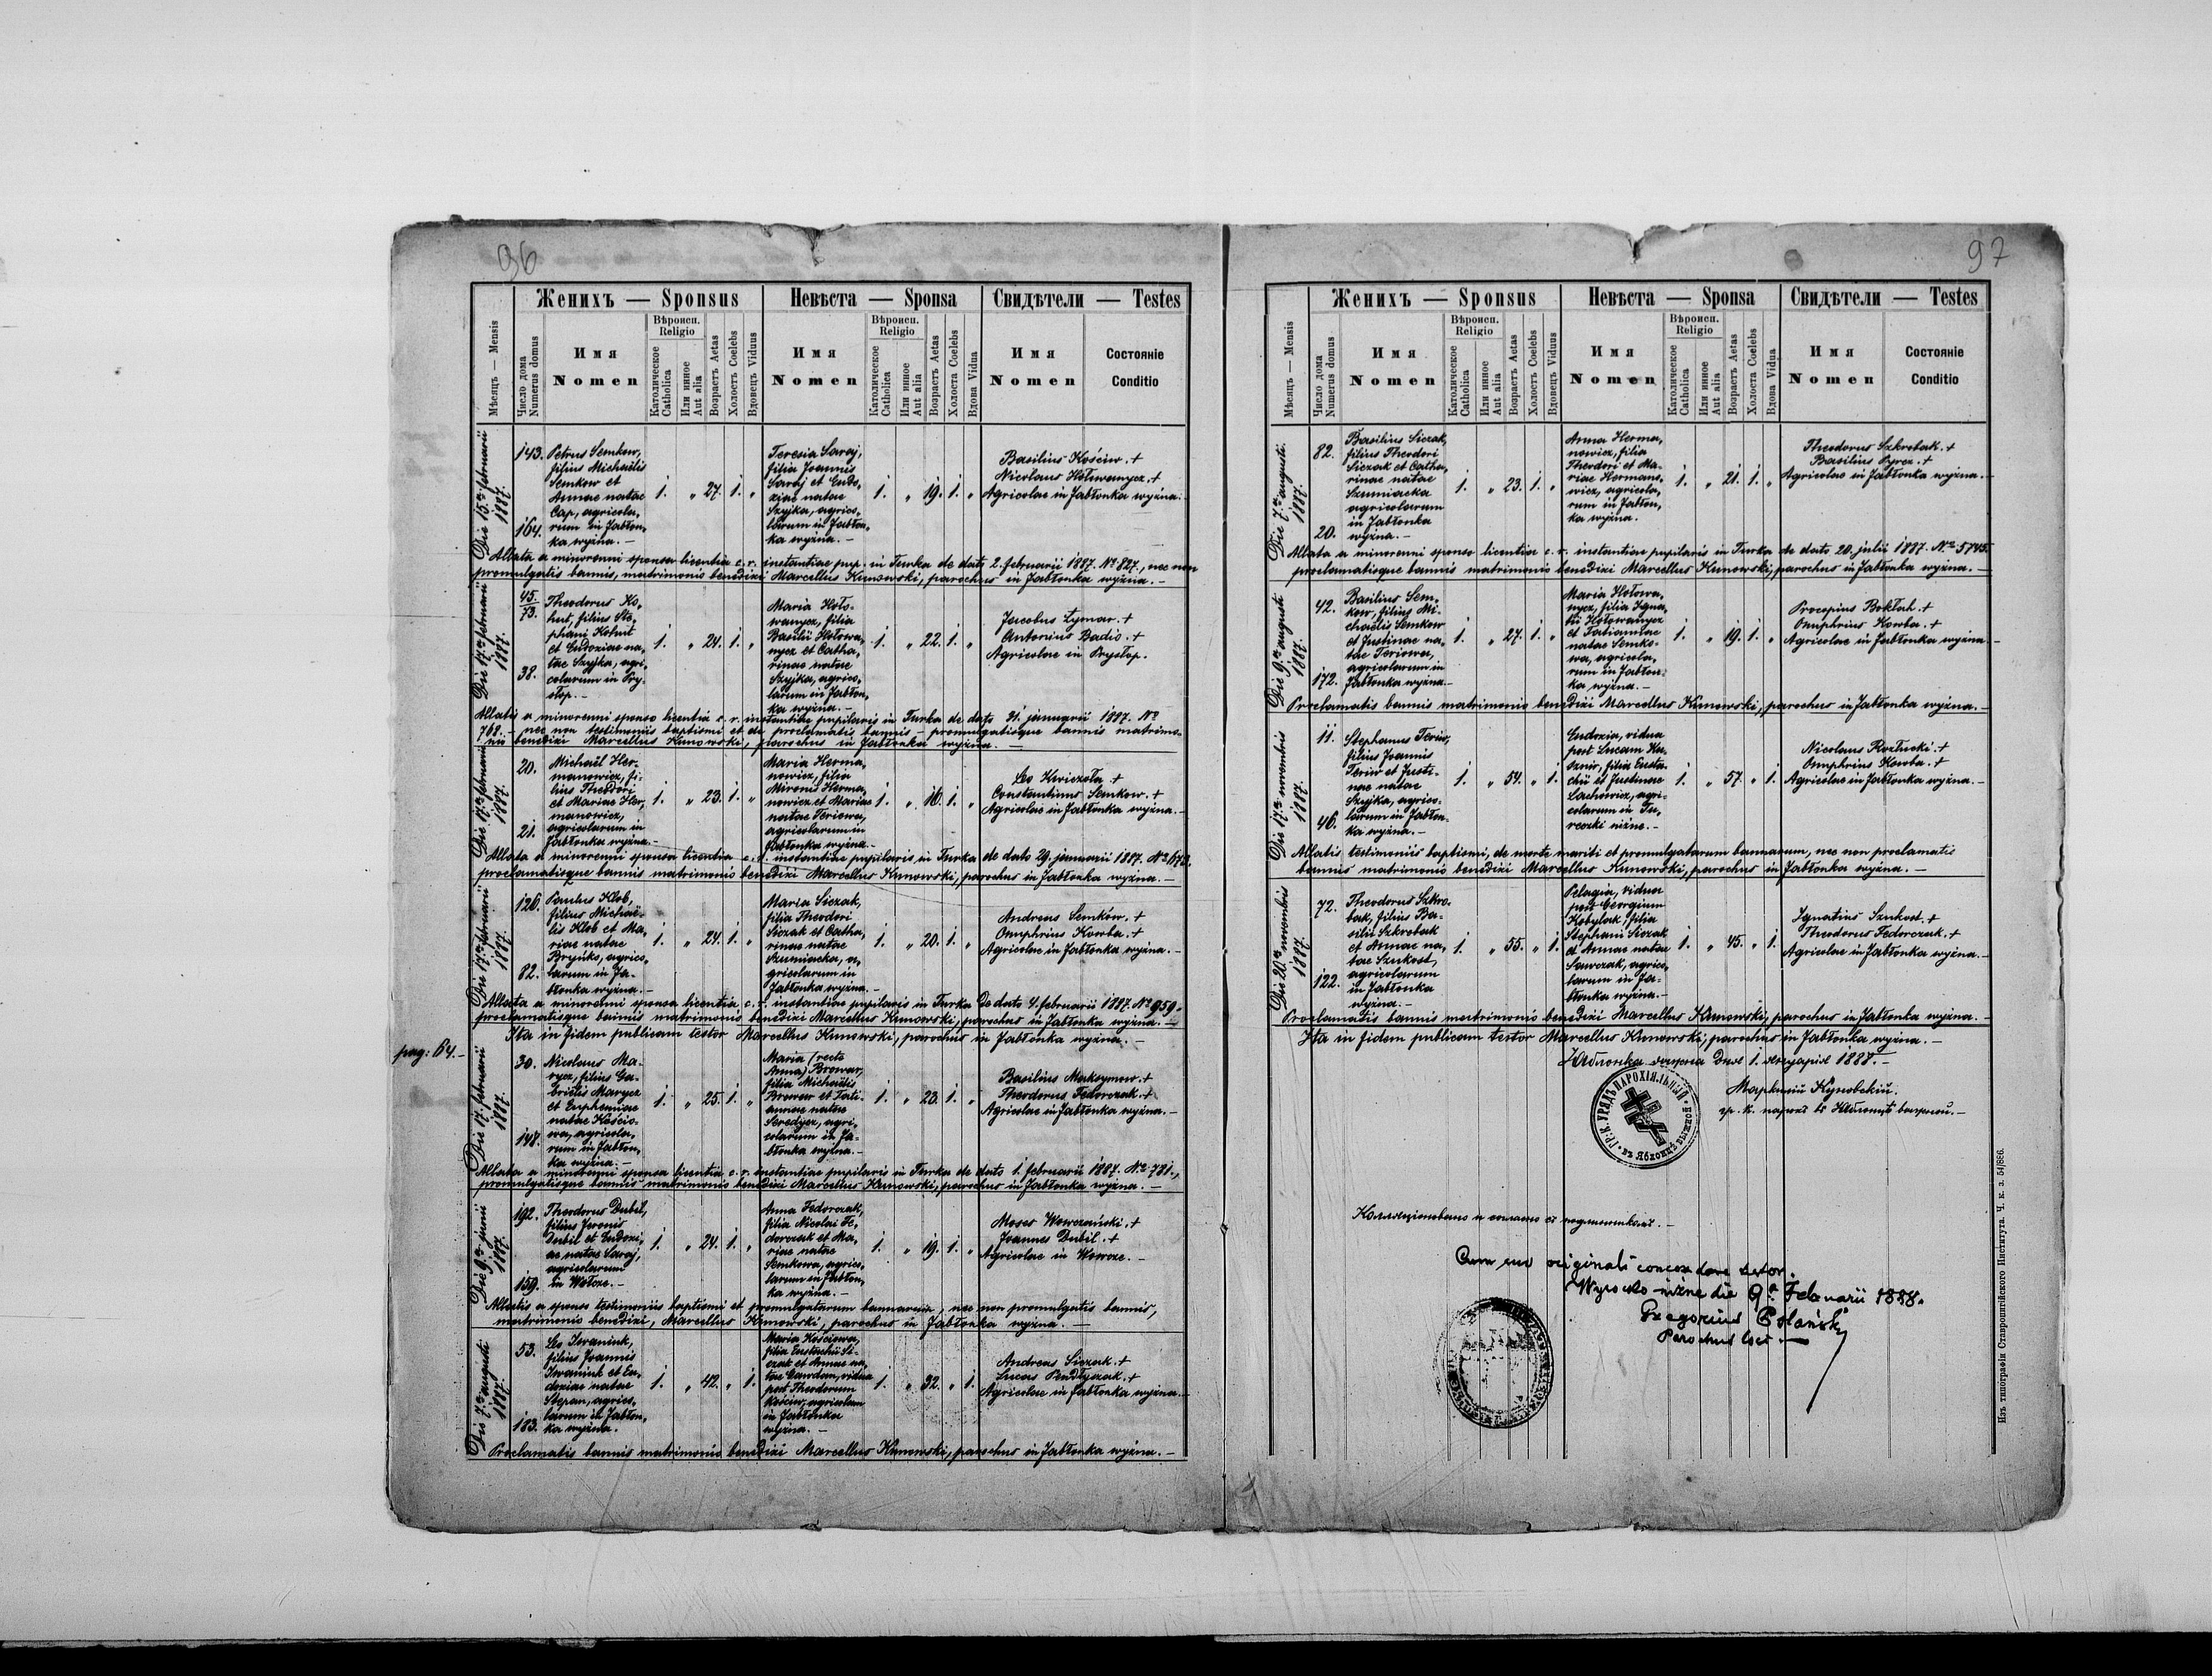 96
Женихъ — Sponsus
Невѣста — Sponsa
Свидѣтели — Testes
Мѣсяцъ — Mensis
Число дома
Numerus domus
Имя
Nomen
Вѣроисп.
Religio
Католическое
Catholica
Или инное
Aut alia
Возрастъ Aetas
Холостъ Coelebs
Вдовецъ Viduus
Имя
Nomen
Вѣроисп.
Religio
Католическое
Catholica
Или инное
Aut alia
Возрастъ Aetas
Холоста Coelebs
Вдова Vidua
Имя
Nomen
Состояніе
Conditio
Die 15ta februarii
1887.
143.
164.
Petrus Semkow,
filius Michaëlis
Semkow et
Annae natae
Cap, agricola,
rum in Jabłon,
ka wyżna. —
1. „ 27. 1. „
Teresia Saraj,
filia Joannis
Saraj et Eudo,
xiae natae
Szyjka, agrico,
larum in Jabłon,
ka wyżna. —
1. „ 19. 1. „
Basilius Kościw. +
Nicolaus Hołowanycz. +
Agricolae in Jabłonka wyżna. —
Allata a minorenni sponsa licentia c. r. instantiae pup. in Turka de dato 2. februarii 1887. No 827., nec non
promulgatis bannis, matrimonio benedixi Marcellus Kunowski, parochus in Jabłonka wyżna. —
Die 17ta februarii
1887.
45.
73.
38.
Theodorus Ko,
hut, filius Ste,
phani Kohut
et Eudoxiae na,
tae Szyjka, agri,
colarum in Pry,
słop. —
1. „ 24. 1. „
Maria Hoło,
wanycz, filia
Basilii Hołowa,
nycz et Catha,
rinae natae
Szyjka, agrico,
larum in Jabłon,
ka wyżna. —
1. „ 22. 1. „
Jacobus Łymar. +
Antonius Badio. +
Agricolae in Prysłop.
Allatis a minorenni sponso licentia c. r. instantiae pupilaris in Turka de dato 31. januarii 1887. No
768. — nec non testimoniis baptismi et de proclamatis bannis — promulgatisque bannis matrimo,
nii benedixi Marcellus Kunowski, parochus in Jabłonka wyżna. —
Die 17ta februarii
1887.
20.
21.
Michaël Her,
manowicz, fi,
lius Theodori
et Mariae Her,
manowicz,
agricolarum in
Jabłonka wyżna. —
1. „ 23. 1. „
Maria Herma,
nowicz, filia
Mironis Herma,
nowicz et Mariae
natae Feriowa,
agricolarum in
Jabłonka wyżna. —
1. „ 16. 1. „
Leo Kwiczoła +
Constantinus Semkow. +
Agricolae in Jabłonka wyżna. —
Allata a minorenni sponsa licentia c. r. instantiae pupilaris in Turka de dato 29. januarii 1887. No 672.
proclamatisque bannis matrimonio benedixi Marcellus Kunowski, parochus in Jabłonka wyżna. —
Die 17ta februarii
1887.
126.
82.
Paulus Klob,
filius Michaë,
lis Klob et Ma,
riae natae
Bryńko, agrico,
larum in Ja,
błonka wyżna. —
1. „ 24. 1. „
Maria Siczak,
filia Theodori
Siczak et Catha,
rinae natae
Szumiacka, a,
gricolarum in
Jabłonka wyżna. —
1. „ 20. 1. „
Andreas Semków. +
Omphrius Kowba. +
Agricolae in Jabłonka wyżna. —
Allata a minorenni sponsa licentia c. r. instantiae pupilaris in Turka de dato 4. februarii 1887. No 959.
proclamatisque bannis matrimonio benedixi Marcellus Kunowski, parochus in Jabłonka wyżna. —
Ita in fidem publicam testor Marcellus Kunowski, parochus in Jabłonka wyżna. —
pag: 64. —
Die 17. februarii
1887.
30.
148.
Nicolaus Ma,
rycz, filius Ga,
brielis Marycz
et Euphemiae
natae Kościo,
wa, agricola,
rum in Jabłon,
ka wyżna. —
1. „ 25. 1. „
Maria (recte
Anna) Browar,
filia Michaëlis
Browar et Tati,
annae natae
Seredycz, agri,
colarum in Ja,
błonka wyżna. —
1. „ 23. 1. „
Basilius Maksymow. +
Theodorus Fedorczak. +
Agricolae in Jabłonka wyżna. —
Allata a minorenni sponsa licentia c. r. instantiae pupilaris in Turka de dato 1. februarii 1887. No 781.,
promulgatisque bannis matrimonio benedixi Marcellus Kunowski, parochus in Jabłonka wyżna. —
Die 9ta junii
1887.
192.
159.
Theodorus Dubil,
filius Jeronis
Dubil et Eudoxi,
ae natae Saraj,
agricolarum
in Wołcze. —
1. „ 24. 1. „
Anna Fedorczak,
filia Nicolai Fe,
dorczak et Ma,
riae natae
Semkowa, agrico,
larum in Jabłon,
ka wyżna. —
1. „ 19. 1. „
Moses Wowczański. +
Joannes Dubil. +
Agricolae in Wowcze. —
Allatis a sponso testimoniis baptismi et promulgatarum bannarum, nec non promulgatis bannis,
matrimonio benedixi, Marcellus Kunowski, parochus in Jabłonka wyżna. —
Die 7ta augusti
1887.
53.
183.
Leo Iwaniuk,
filius Joannis
Iwaniuk et Eu,
doxiae natae
Stepan, agrico,
larum in Jabłon,
ka wyżna.
1. „ 42. „ 1.
Maria Kościowa,
filia Eustachii Si,
czak et Annae na,
tae Gawdan, vidua
post Theodorum
Kościw, agricolam
in Jabłonka
wyżna. —
1. „ 32. „ 1.
Andreas Siczak. +
Lucas Pendłyszak. +
Agricolae in Jabłonka wyżna. —
Proclamatis bannis matrimonio benedixi Marcellus Kunowski, parochus in Jabłonka wyżna. —
97
Женихъ — Sponsus
Невѣста — Sponsa
Свидѣтели — Testes
Мѣсяцъ — Mensis
Число дома
Numerus domus
Имя
Nomen
Вѣроисп.
Religio
Католическое
Catholica
Или инное
Aut alia
Возрастъ Aetas
Холостъ Coelebs
Вдовецъ Viduus
Имя
Nomen
Вѣроисп.
Religio
Католическое
Catholica
Или инное
Aut alia
Возрастъ Aetas
Холоста Coelebs
Вдова Vidua
Имя
Nomen
Состояніе
Conditio
Die 7ta augusti.
1887.
82.
20.
Basilius Siczak,
filius Theodori
Siczak et Catha,
rinae natae
Szumiacka
agricolarum
in Jabłonka
wyżna. —
1. „ 23. 1. „
Anna Herma,
nowicz, filia
Theodori et Ma,
riae Hermano,
wicz, agricola,
rum in Jabłon,
ka wyżna.
1. „ 21. 1. „
Theodorus Szkrobak. +
Basilius Pyrcz. +
Agricolae in Jabłonka wyżna. —
Allata a minorenni sponso licentia c. r. instantiae pupilaris in Turka de dato 20. julii 1887. No 5745.
proclamatisque bannis matrimonio benedixi Marcellus Kunowski, parochus in Jabłonka wyżna. —
Die 9ta augusti
1887.
42.
172.
Basilius Sem,
kow, filius Mi,
chaëlis Semkow
et Justinae na,
tae Feriowa,
agricolarum in
Jabłonka wyżna. —
1. „ 27. 1. „
Maria Hołowa,
nycz, filia Igna,
tii Hołowanycz
et Tatiannae
natae Semko,
wa, agricola,
rum in Jabłon,
ka wyżna. —
1. „ 19. 1. „
Procopius Bokłah. +
Omphrius Kowba. +
Agricolae in Jabłonka wyżna. —
Proclamatis bannis matrimonio benedixi Marcellus Kunowski, parochus in Jabłonka wyżna. —
Die 17ta novembris
1887.
11.
46.
Stephanus Feriw,
filius Joannis
Feriw et Justi,
nae natae
Szyjka, agrico,
larum in Jabłon,
ka wyżna. —
1. „ 54. „ 1.
Eudoxia, vidua
post Lucam Ku,
sznir, filia Eusta,
chii et Justinae
Lachowicz, agri,
colarum in Tu,
reczki niżne. —
1. „ 57. „ 1.
Nicolaus Rozłucki. +
Omphrius Kowba. +
Agricolae in Jabłonka wyżna. —
Allatis testimoniis baptismi, de morte mariti et promulgatarum bannarum, nec non proclamatis
bannis matrimonio benedixi Marcellus Kunowski, parochus in Jabłonka wyżna. —
Die 20ta novembris
1887.
72.
122.
Theodorus Szkro,
bak, filius Ba,
silii Szkrobak
et Annae na,
tae Sznkost,
agricolarum
in Jabłonka
wyżna. —
1. „ 55. „ 1.
Pelagia, vidua
post Georgium
Kobylak, filia
Stephani Siczak
et Annae natae
Sawczak, agrico,
larum in Ja,
błonka wyżna. —
1. „ 45. „ 1.
Ignatius Sznkost. +
Theodorus Fedorczak. +
Agricolae in Jabłonka wyżna. —
Proclamatis bannis matrimonio benedixi Marcellus Kunowski, parochus in Jabłonka wyżna. —
Ita in fidem publicam testor Marcellus Kunowski, parochus in Jabłonka wyżna. —
Яблонка дня 1. 1888. —
ГР. К. УРЯДЪ ПАРОХІЯЛЬНЫЙ
въ Яблонцѣ ВЫЖНОЙ
Куновскій.
гр. к. парохъ въ Яблонцѣ выжной. —
и согласно съ подлинникомъ. —
Cum suo originali concordare testor.
Wysocko niżne die 9a Februarii 1888.
Gregorius Polański
Parochus loci —
Изъ типографіи Ставропигійского Института. Ч. к. з. 54/886.